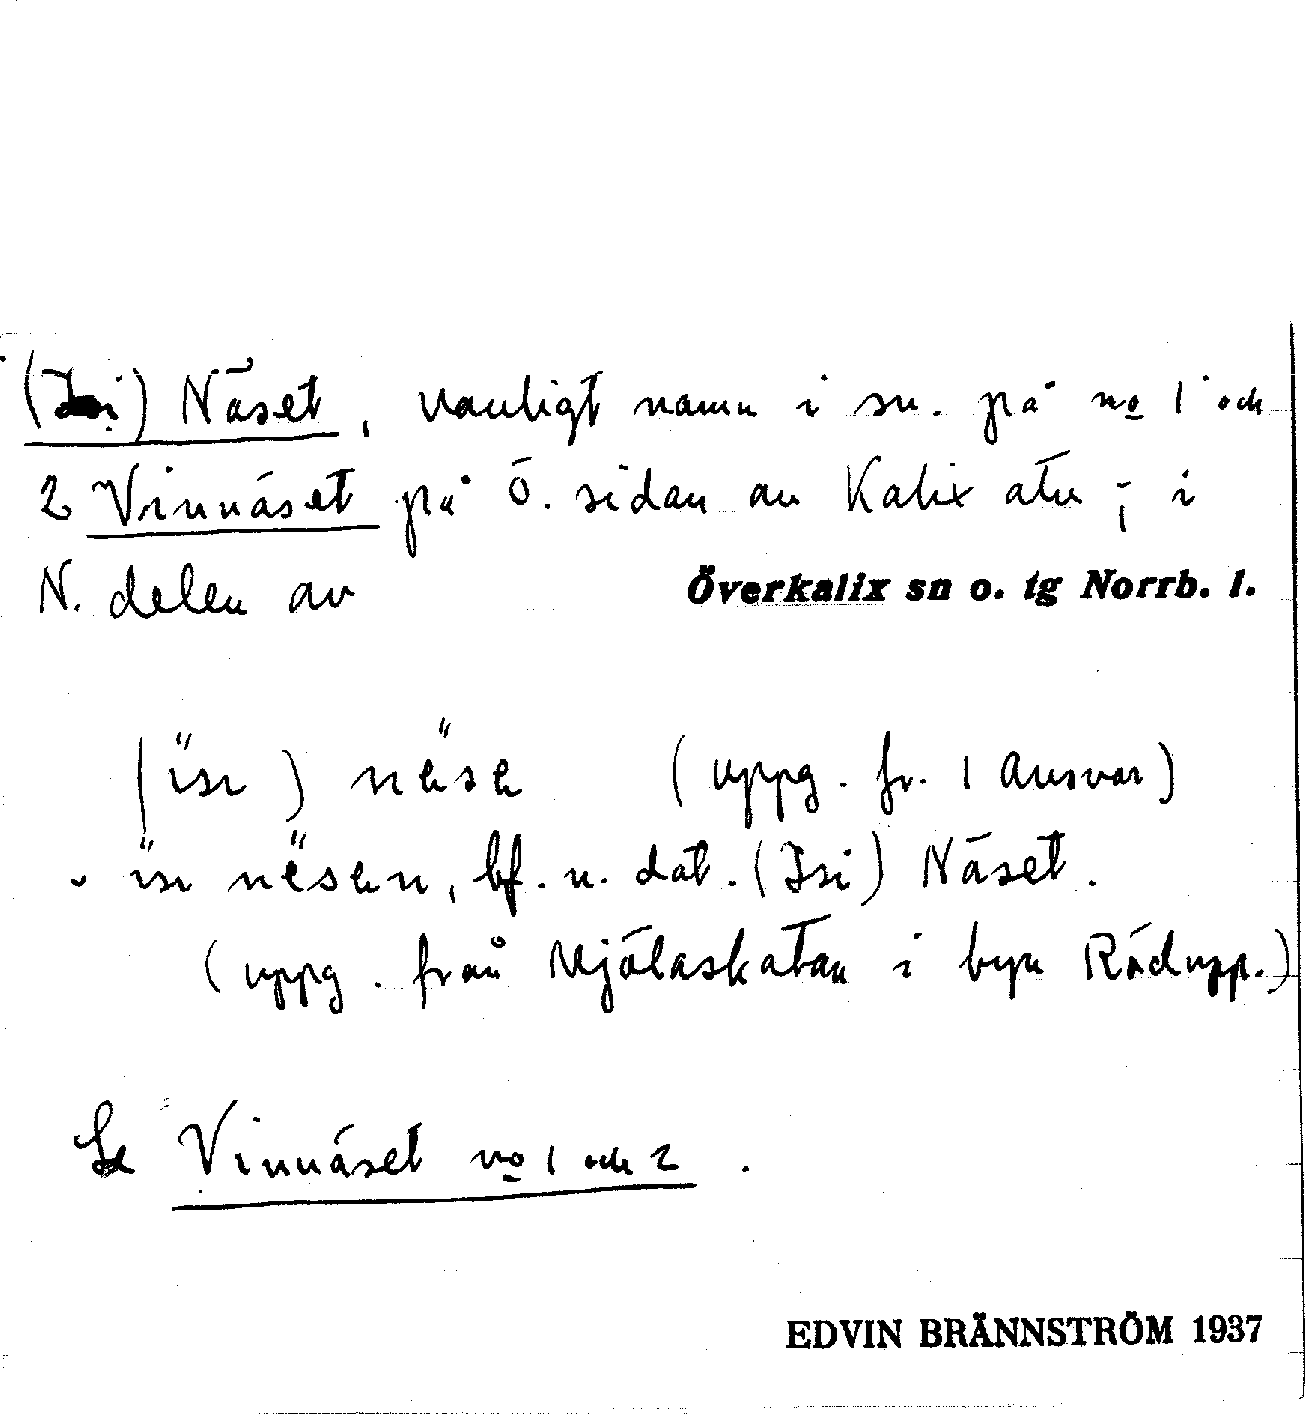 (Isi) Näset, vanligt namn i sn. på no 1 och
2 Vinnäset på Ö. sidan av Kalix älv; i
N. delen av Överkalix sn o. tg Norrb. l.
( ) (uppg. fr. 1 Ansvar)
bf. n. dat. (Isi) Näset.
(uppg. från Mjölaskatan i byn Rödupp.)
Se Vinnäset no 1 och 2.
EDVIN BRÄNNSTRÖM 1937